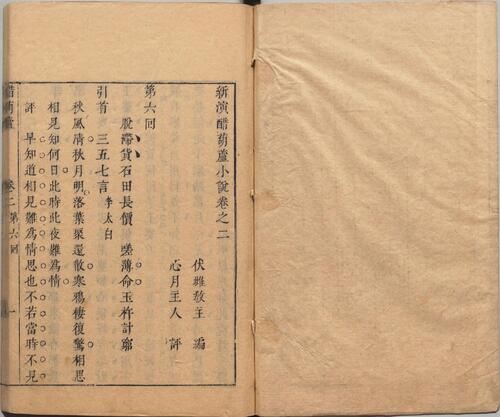 新演醋葫蘆小說卷之二
伏雌敎主 編
心月主人 評
第六回
脫滯貨石田長價 嗟薄命玉杵計窮
引首 三五七言 李太白
秋風淸秋月明落葉聚還散寒鴉棲復驚相思
相見知何日此時此夜難爲情
評 早知道相見難爲情思也不若當時不見
醋葫蘆 卷二第六回 一